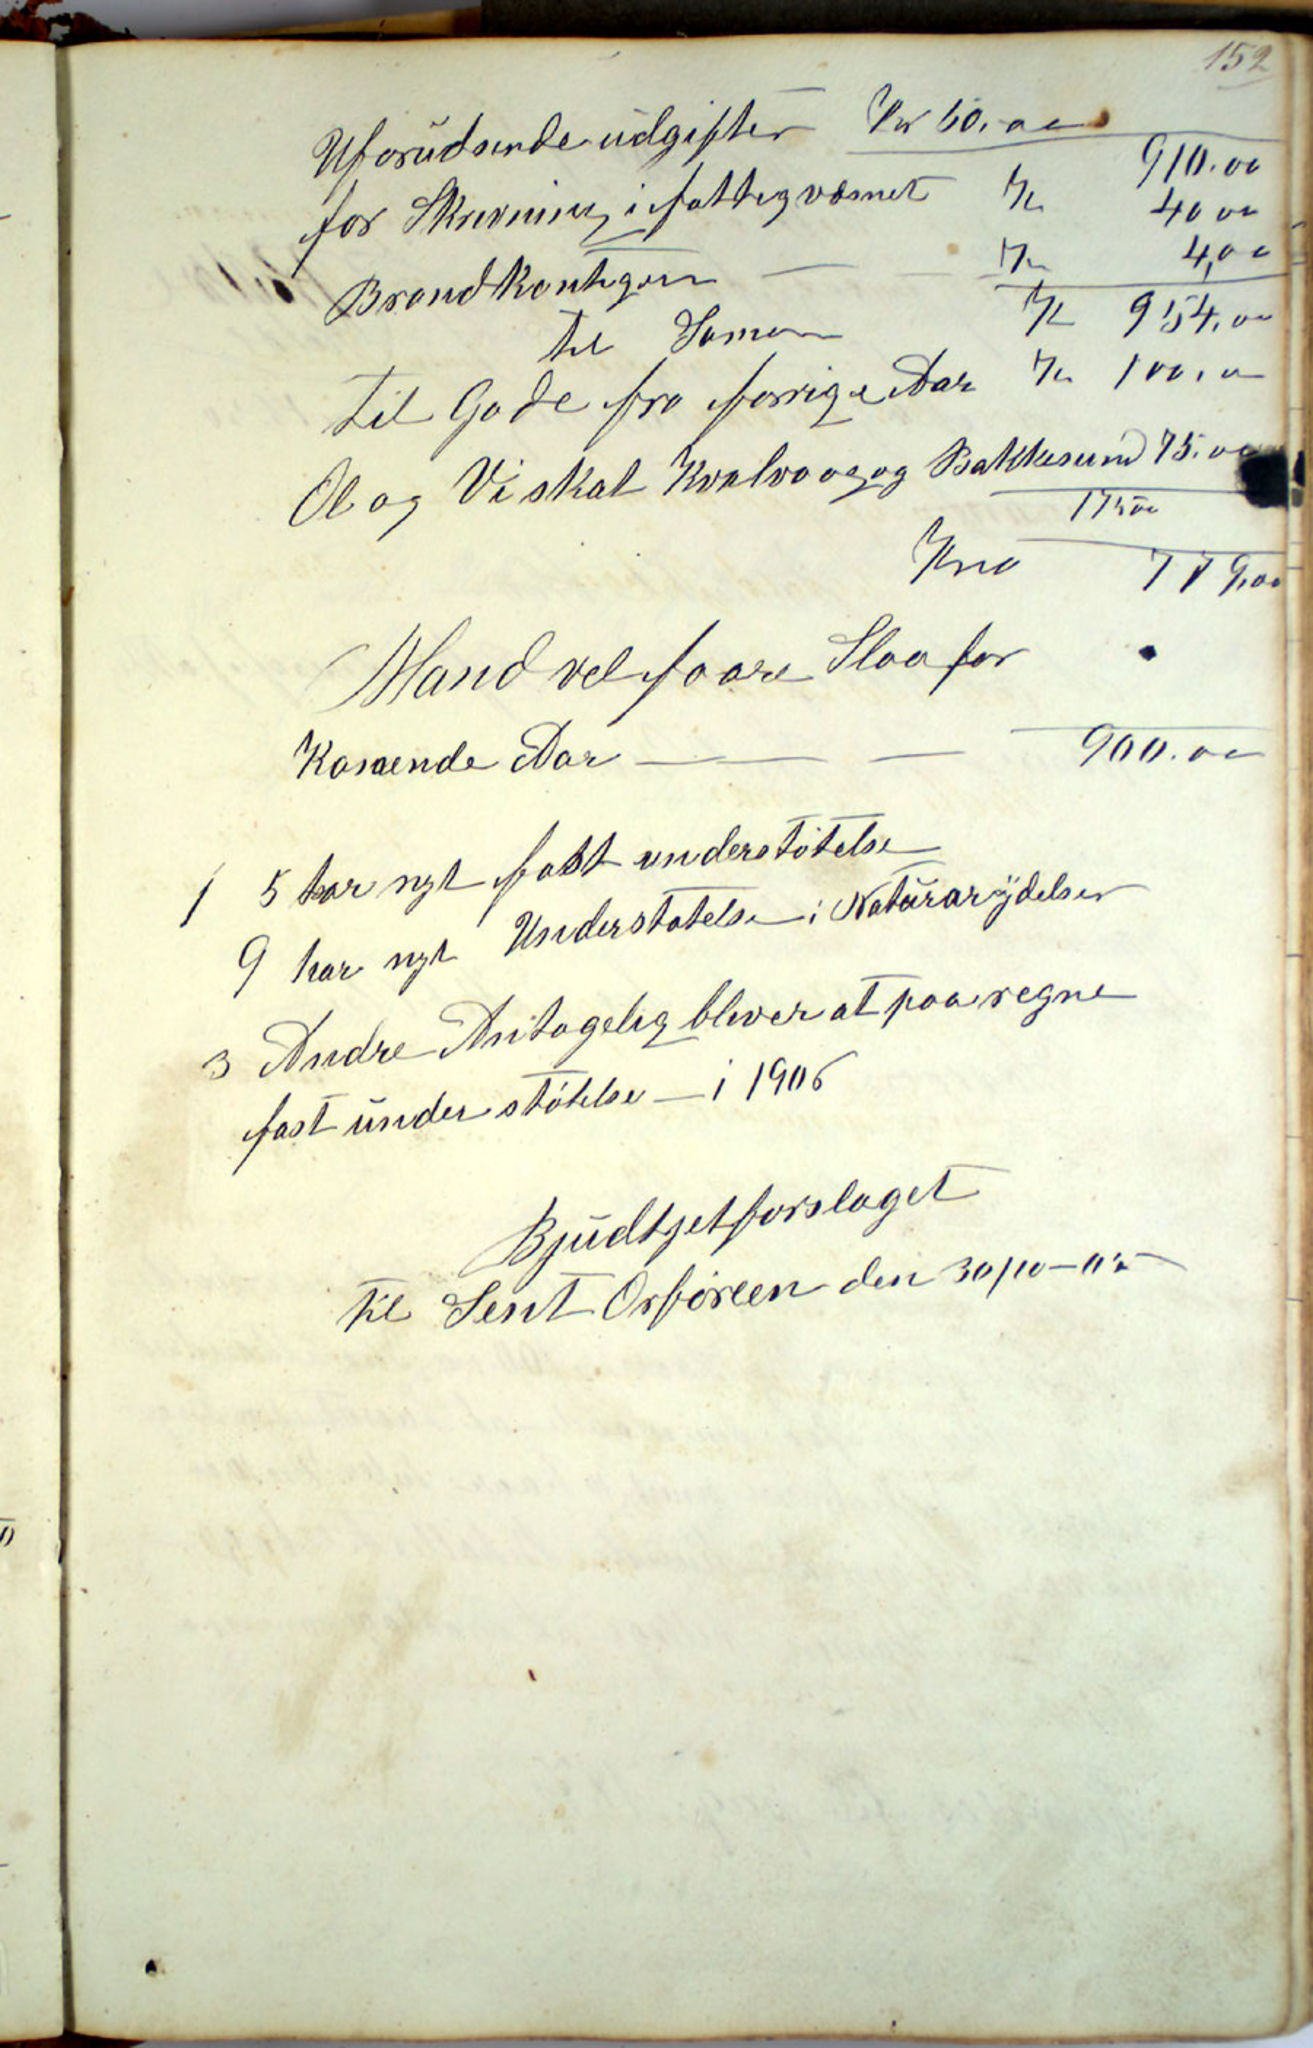 152
Uforüdseende üdgifter Kr 50.00
910.00
for Skrivning i fattigvæsnet Kr 40 00
Brandkontigen — — Kr 4,00
til Samen Kr 954,00
til Gode fra forrige Aar Kr 100,00
Øl og Vi skat Kvalvaag og Bakkesund 75.00
175 00
Kro 779,00
Mand vel faare Slaa for
Komende Aar — — — 900.00
1 5 har nyt fast understøtelse
9 har nyt Understøtelse i Natürarÿdelser
3 Andre Antagelig bliver at paaregne
fast ünderstøtelse — i 1906
Bjüdtjetforslaget
til Sent Orføreen den 30/10–05